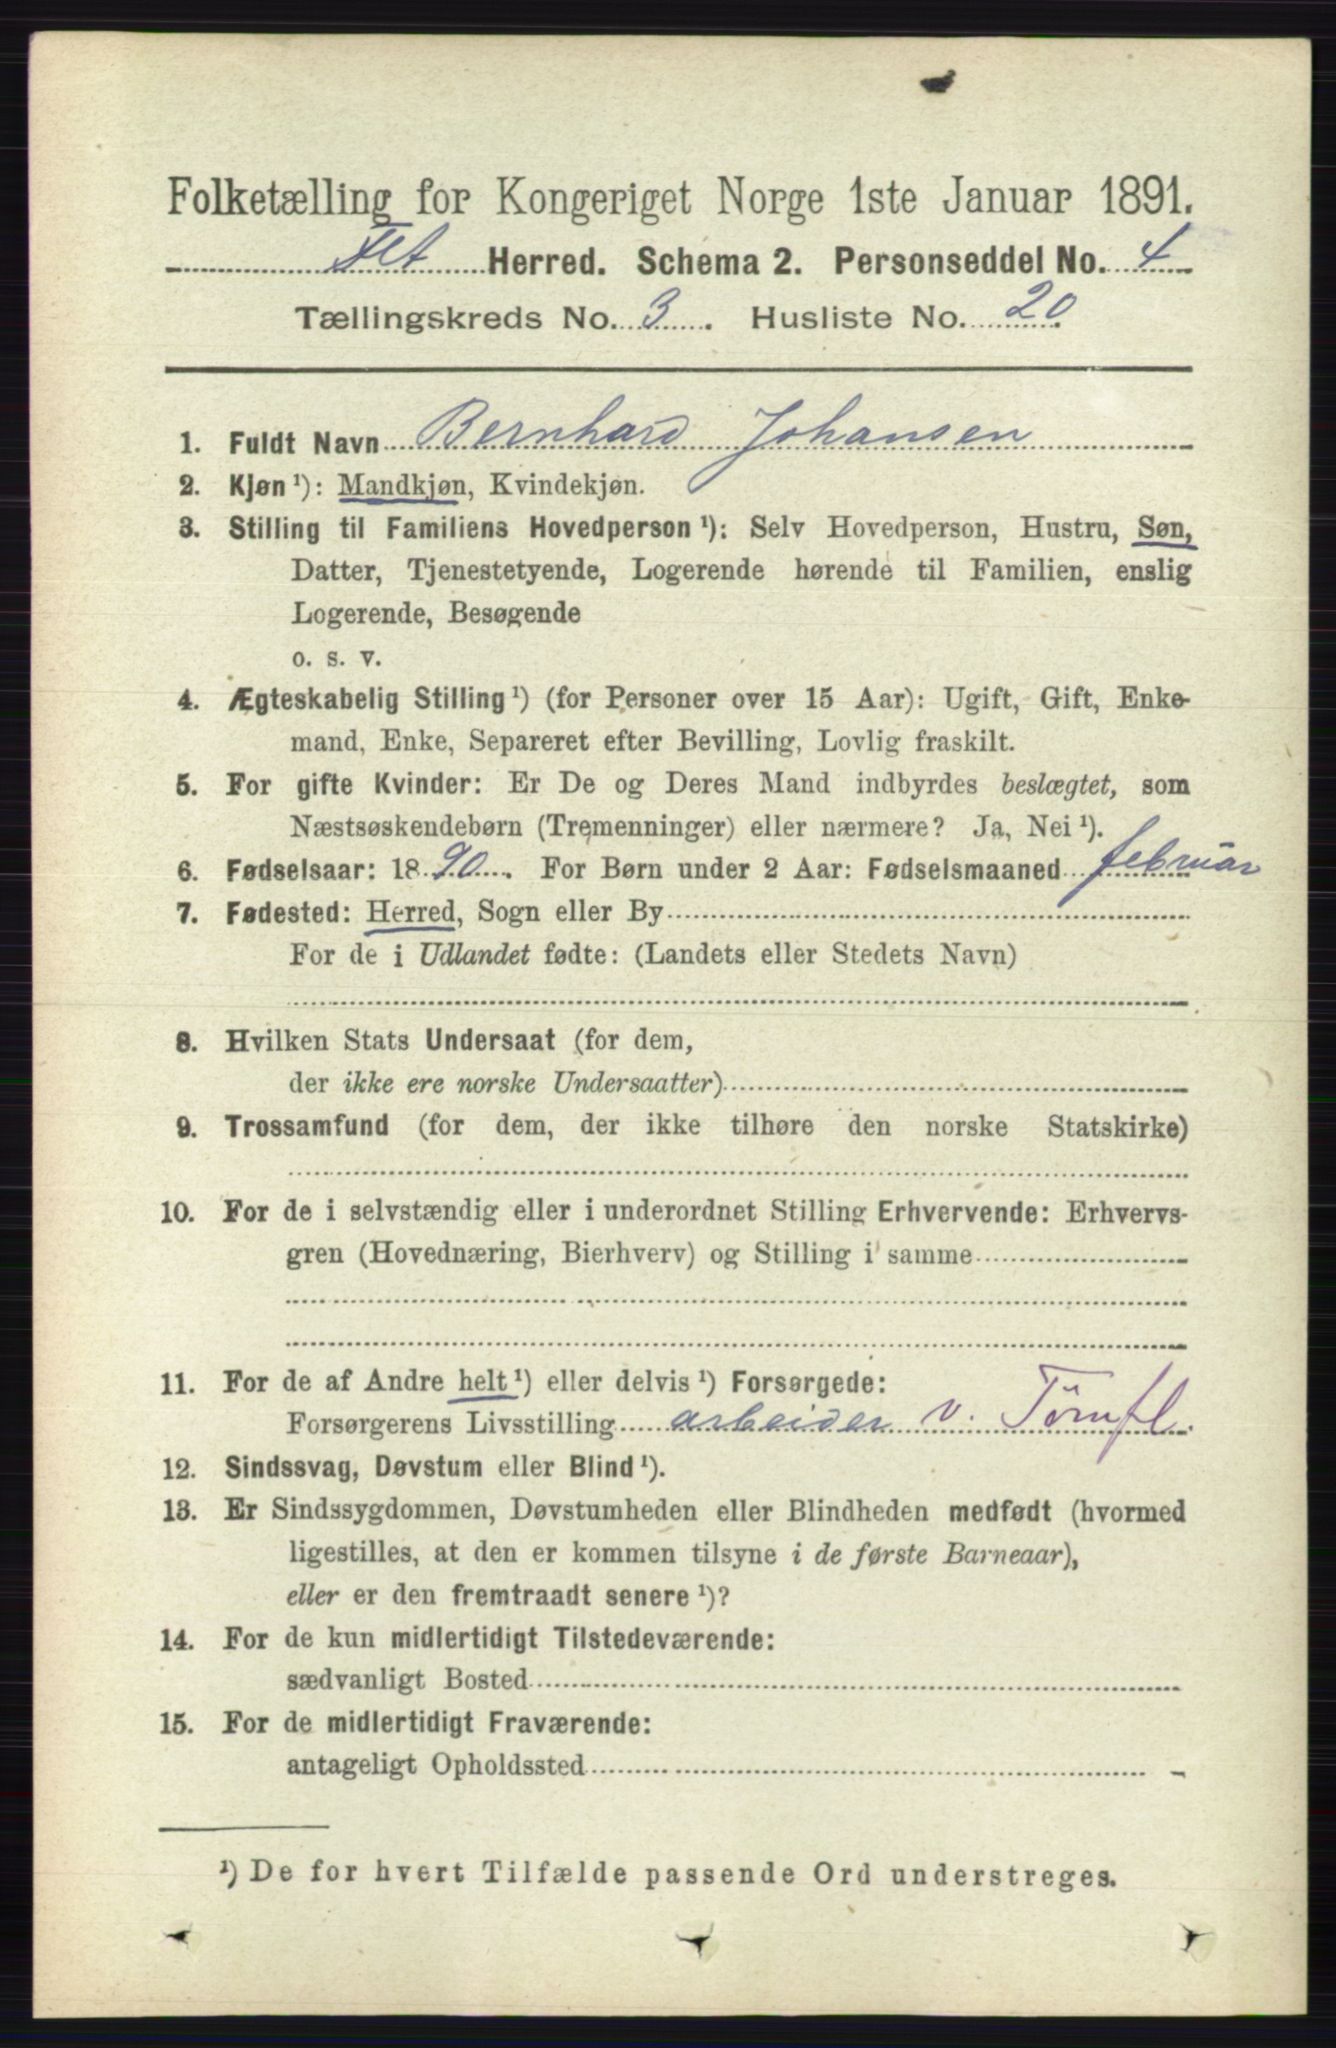 Folketælling for Kongeriget Norge 1ste Januar 1891.
Fet Herred. Schema 2. Personseddel No. 4
Tællingskreds No. 3. Husliste No. 20.
1. Fuldt Navn Bernhard Johansen
2. Kjøn ¹): Mandkjøn, Kvindekjøn.
3. Stilling til Familiens Hovedperson ¹): Selv Hovedperson, Hustru, Søn,
Datter, Tjenestetyende, Logerende hørende til Familien, enslig
Logerende, Besøgende
o. s. v.
4. Ægteskabelig Stilling ¹) (for Personer over 15 Aar): Ugift, Gift, Enke-
mand, Enke, Separeret efter Bevilling, Lovlig fraskilt.
5. For gifte Kvinder: Er De og Deres Mand indbyrdes beslægtet, som
Næstsøskendebørn (Tremenninger) eller nærmere? Ja, Nei ¹).
6. Fødselsaar: 1890. For Børn under 2 Aar: Fødselsmaaned februar
7. Fødested: Herred, Sogn eller By
For de i Udlandet fødte: (Landets eller Stedets Navn)
8. Hvilken Stats Undersaat (for dem,
der ikke ere norske Undersaatter)
9. Trossamfund (for dem, der ikke tilhøre den norske Statskirke)
10. For de i selvstændig eller i underordnet Stilling Erhvervende: Erhvervs-
gren (Hovednæring, Bierhverv) og Stilling i samme
11. For de af Andre helt ¹) eller delvis ¹) Forsørgede:
Forsørgerens Livsstilling arbeider v. Tömfl.
12. Sindssvag, Døvstum eller Blind ¹).
13. Er Sindssygdommen, Døvstumheden eller Blindheden medfødt (hvormed
ligestilles, at den er kommen tilsyne i de første Barneaar),
eller er den fremtraadt senere ¹)?
14. For de kun midlertidigt Tilstedeværende:
sædvanligt Bosted
15. For de midlertidigt Fraværende:
antageligt Opholdssted
¹) De for hvert Tilfælde passende Ord understreges.